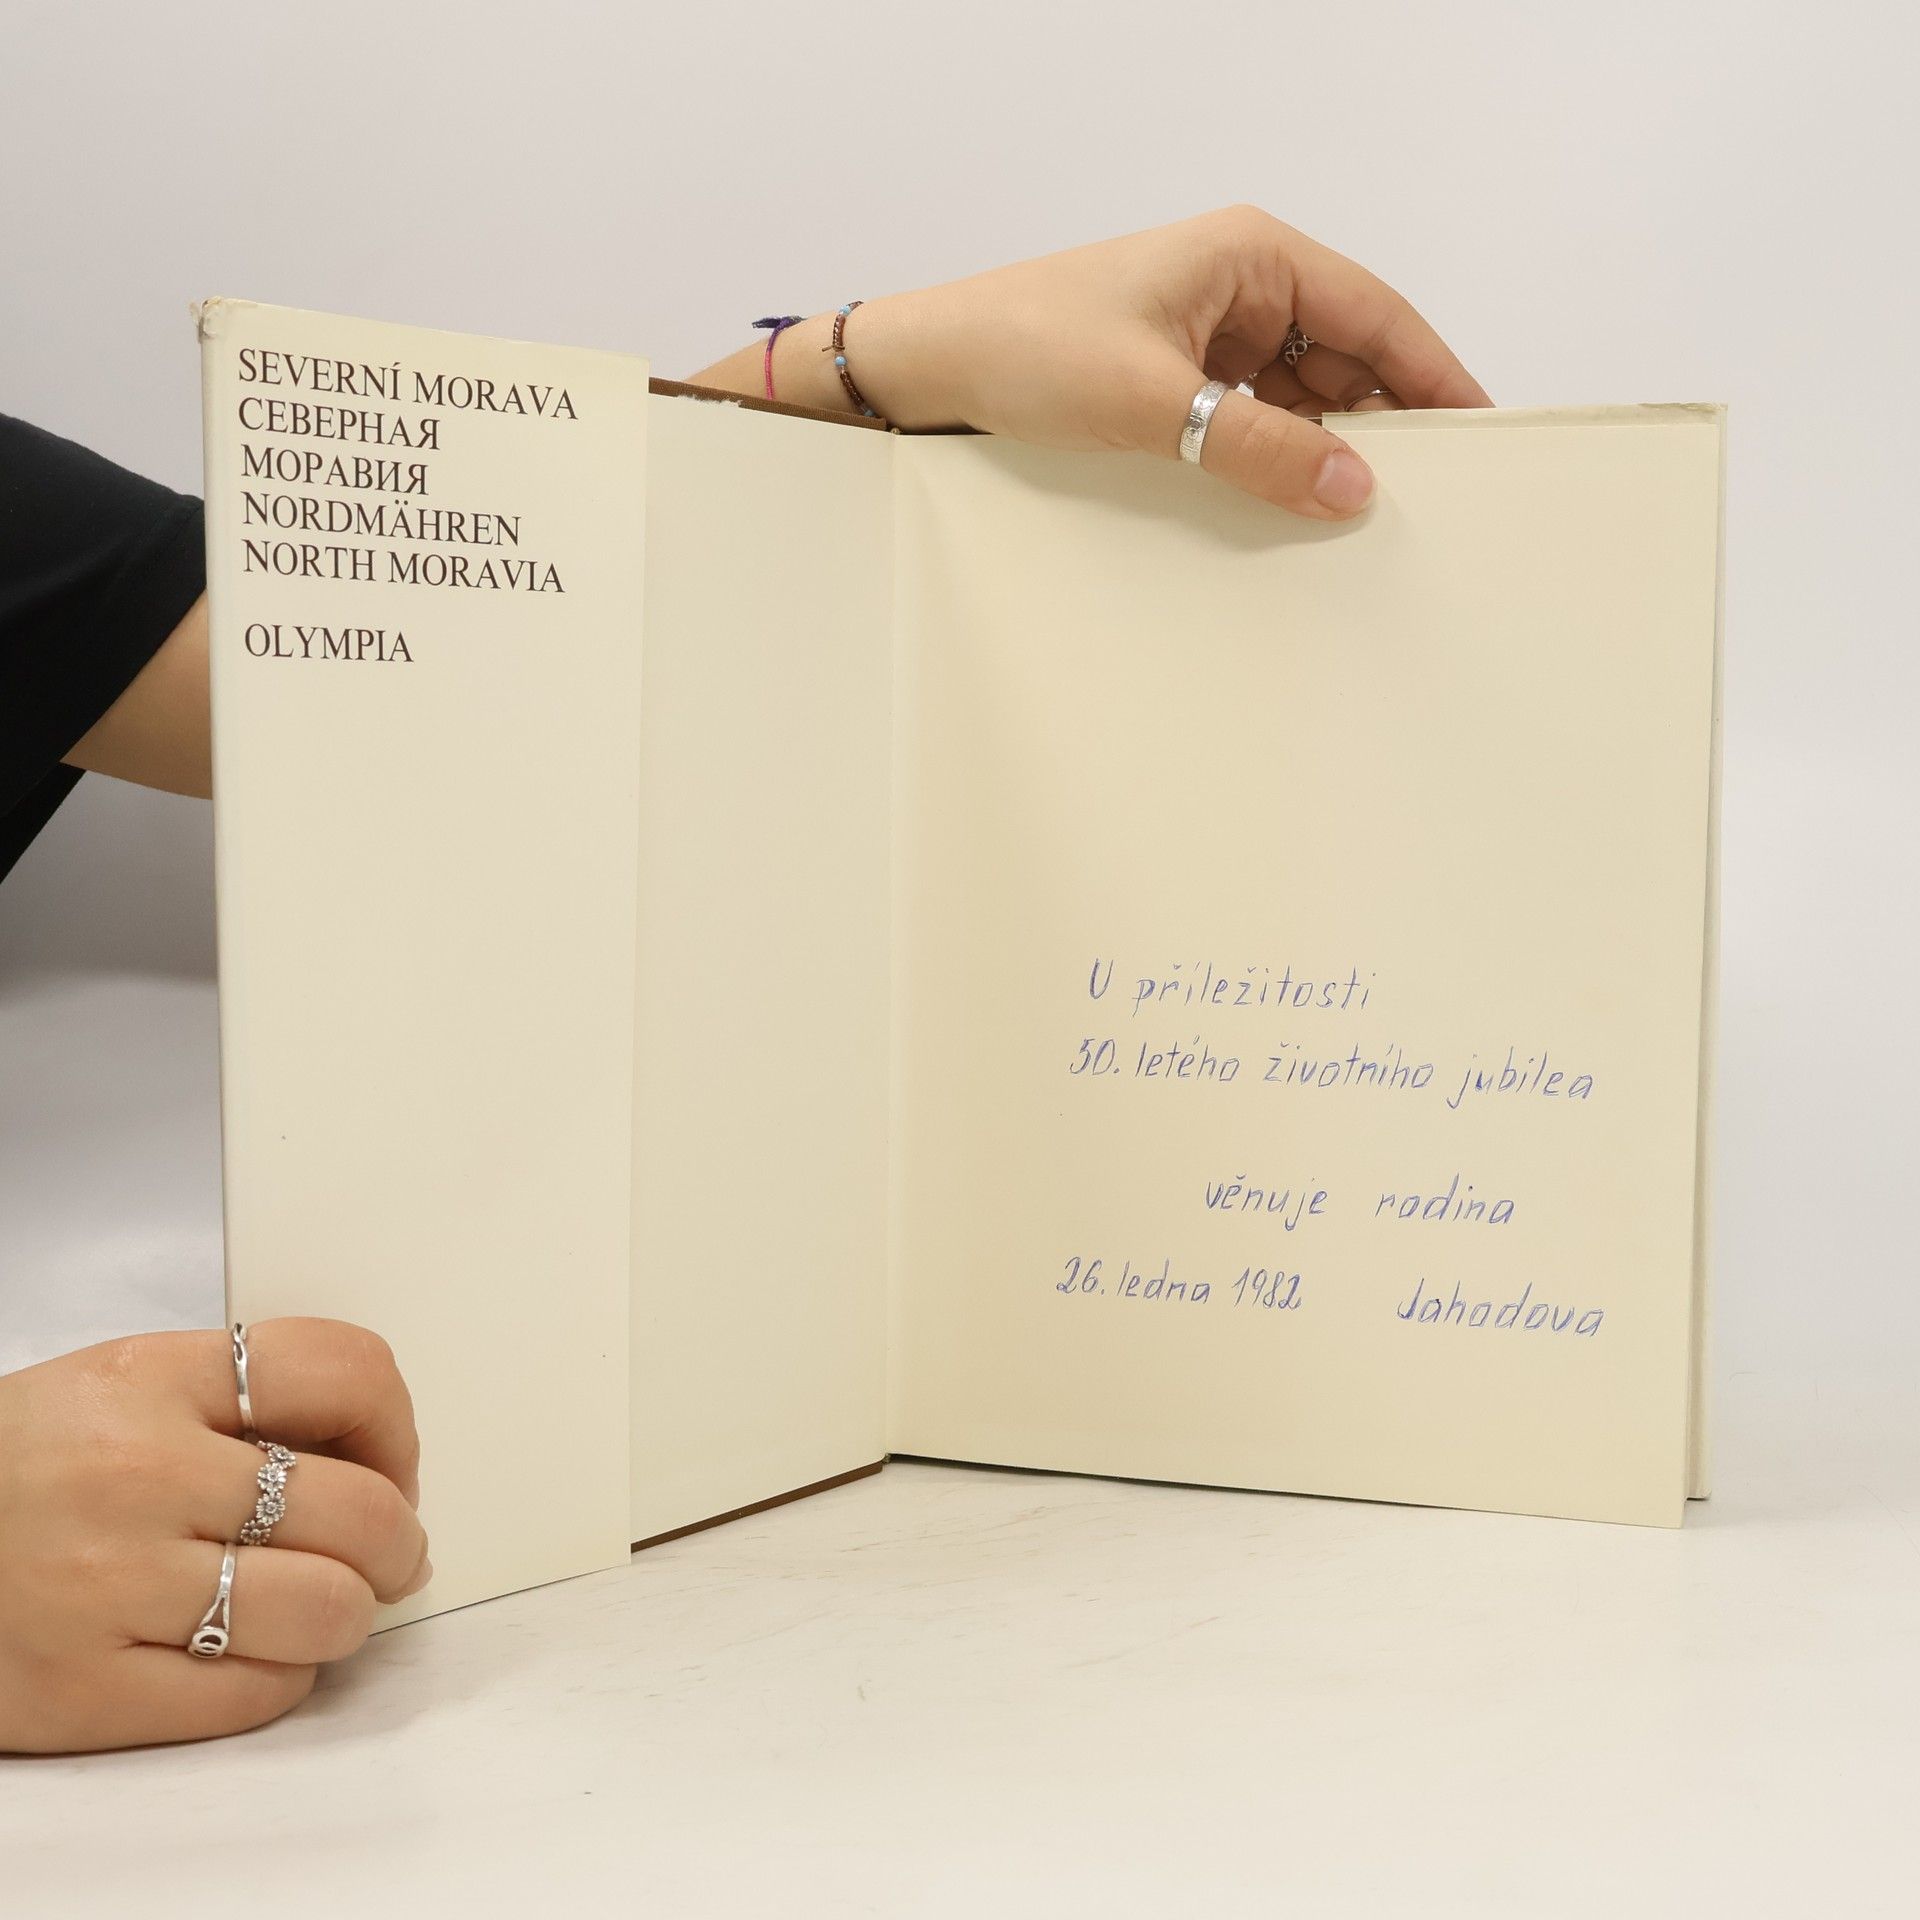 SEVERNÍ MORAVA
СЕВЕРНАЯ
МОРАВИЯ
NORDMÄHREN
NORTH MORAVIA
OLYMPIA
U příležitosti
50. letého životního jubilea
věnuje rodina
26. ledna 1982 Jahodova